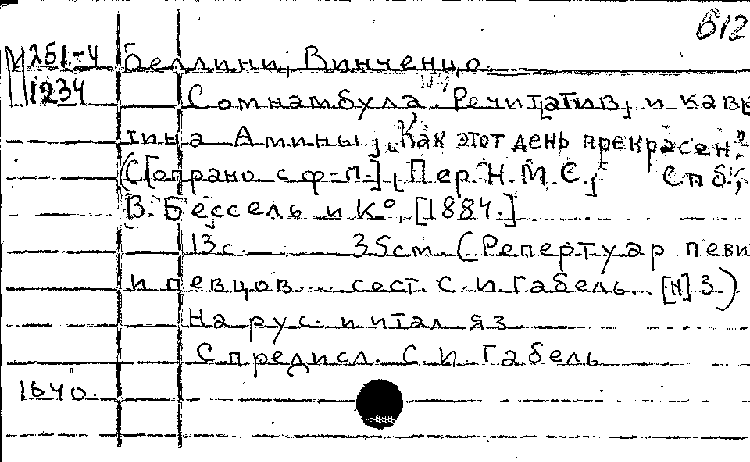 В12
М 251-4 Беллини, Винченцо.
1234
Сомнамбула. Речитатив, и кава
тина Амины, „Как этот день прекрасен".
С[опрано с ф-п.] [Пер. Н. М. С.] Спб.,
В. Бессель и К°, [1884.]
13 с. 35 см. (Репертуар певи
и певцов... сост. С. И. Габель. [N] 3.)
На рус. и итал яз
С предисл. С. И. Габель
1640.